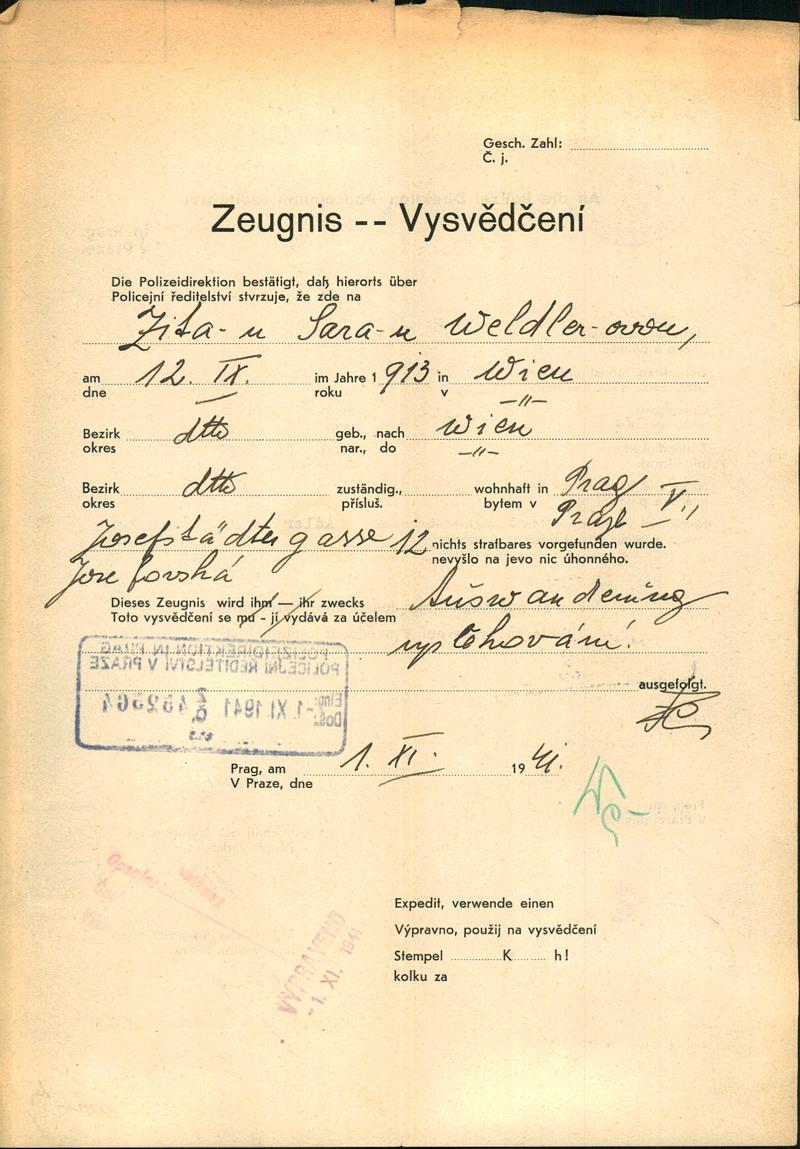 Gesch. Zahl:
Č. j.
Zeugnis -- Vysvědčení
Die Polizeidirektion bestätigt, daß hierorts über
Policejní ředitelství stvrzuje, že zde na
Zita-u Sara-u Weldler-ovou,
am 12. IX. im Jahre 1913 in Wien
dne roku v -"-
Bezirk dtto geb., nach Wien
okres nar., do -"-
Bezirk dtto zuständig., wohnhaft in Prag V.,
okres přísluš. bytem v Praze
Josefstädtergasse 12 nichts strafbares vorgefunden wurde.
Josefovská nevyšlo na jevo nic úhonného.
Dieses Zeugnis wird ihm — ihr zwecks Auswanderung
Toto vysvědčení se mu - jí vydává za účelem
vystěhování.
POLIZEIDIREKTION IN PRAG
POLICEJNÍ ŘEDITELSTVÍ V PRAZE
Eing.: -1. XI. 1941
Doš.:
ausgefolgt.
Prag, am 1. XI. 1941.
V Praze, dne
VYPRAVENO
-1. XI. 1941
Expedit, verwende einen
Výpravno, použij na vysvědčení
Stempel K h!
kolku za